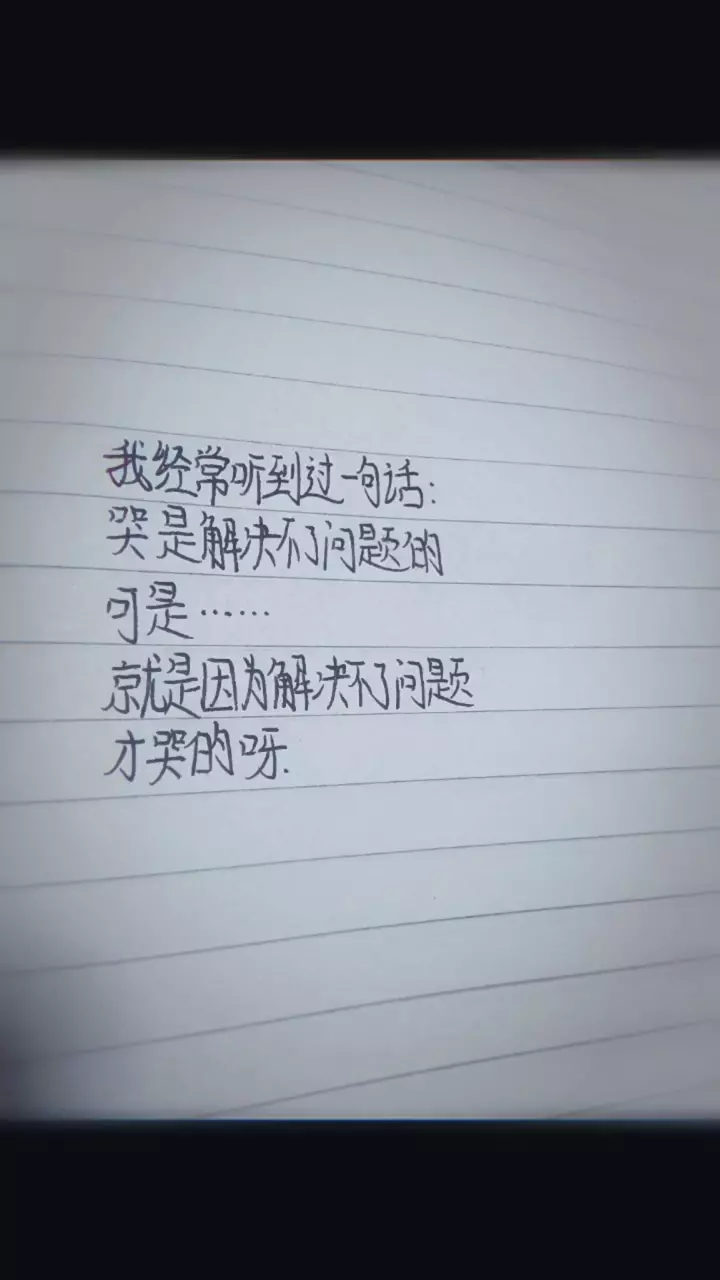 我经常听到过一句话:
哭是解决不了问题的
可是……
就是因为解决不了问题
才哭的呀.